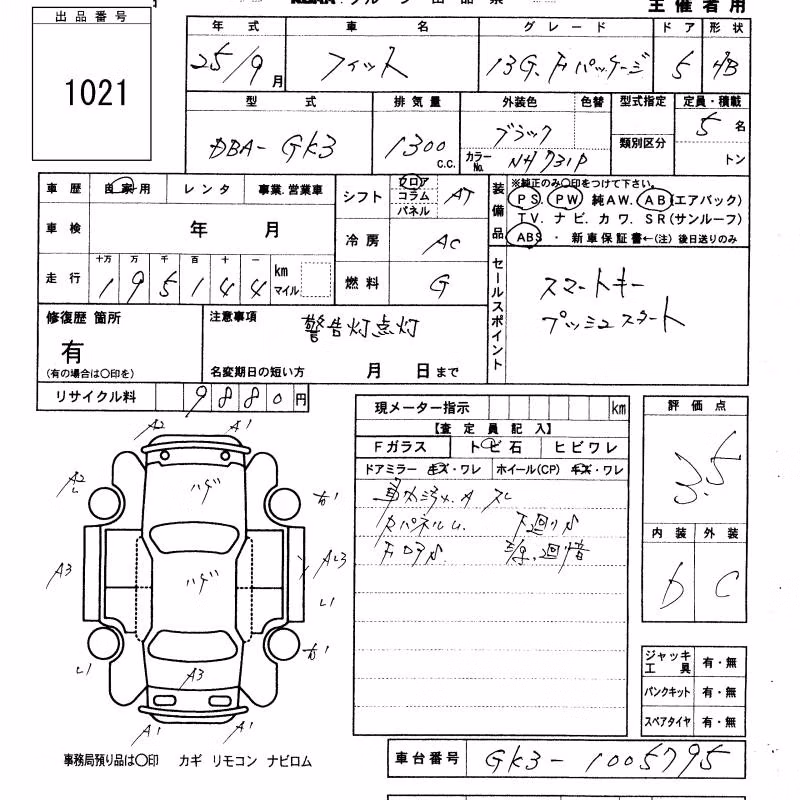 主催者用
出品番号
1021
年式 車名 グレード ドア 形状
25/9月 フィット 13G. Fパッケージ 5 HB
型式 排気量 外装色 色替 型式指定 定員・積載
DBA-GK3 1300 C.C. ブラック カラーNo. NH731P 類別区分 5名 トン
車歴 自家用 レンタ 事業.営業車
車検 年 月
走行 十万 万 千 百 十 一
195144 km マイル
シフト フロア コラム パネル AT
冷房 AC
燃料 G
装備品
※純正のみ〇印をつけて下さい。
PS. PW 純AW. AB(エアバック)
TV. ナビ. カワ. SR(サンルーフ)
ABS ・ 新車保証書←(注) 後日送りのみ
セールスポイント
スマートキー
プッシュスタート
修復歴 箇所
有
(有の場合は〇印を)
注意事項
警告灯点灯
名変期日の短い方 月 日まで
リサイクル料 9880円
現メーター指示 km
【査定員記入】
Fガラス トビ石 ヒビワレ
ドアミラー キズ・ワレ ホイール(CP) キズ・ワレ
下廻りサ
評価点
3.5
内装 外装
D C
A2 A1
A2
ハゲ
A3
ハゲ
L1
L1
A3
A1 A1
ジャッキ工具 有・無
パンクキット 有・無
スペアタイヤ 有・無
事務局預り品は〇印 カギ リモコン ナビロム
車台番号 GK3-1005795